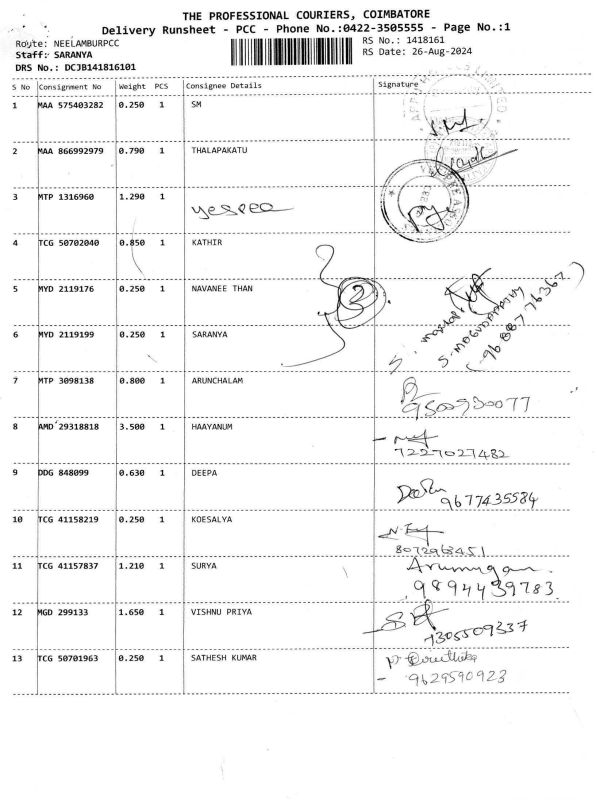 THE PROFESSIONAL COURIERS, COIMBATORE
Delivery Runsheet - PCC - Phone No.:0422-3505555 - Page No.:1
Route: NEELAMBURPCC
RS No.: 1418161
Staff: SARANYA
RS Date: 26-Aug-2024
DRS No.: DCJB141816101
S No Consignment No Weight PCS Consignee Details Signature
1 MAA 575403282 0.250 1 SM
2 MAA 866992979 0.790 1 THALAPAKATU
3 MTP 1316960 1.290 1 yespee
4 TCG 50702040 0.850 1 KATHIR
5 MYD 2119176 0.250 1 NAVANEE THAN
2
6 MYD 2119199 0.250 1 SARANYA
96 887 76367
7 MTP 3098138 0.800 1 ARUNCHALAM
9500930077
8 AMD 29318818 3.500 1 HAAYANUM
7227027482
9 DDG 848099 0.630 1 DEEPA
9677435584
10 TCG 41158219 0.250 1 KOESALYA
8072968451
11 TCG 41157837 1.210 1 SURYA Arumugam
9894439783
12 MGD 299133 1.650 1 VISHNU PRIYA
7305509337
13 TCG 50701963 0.250 1 SATHESH KUMAR
9629590923